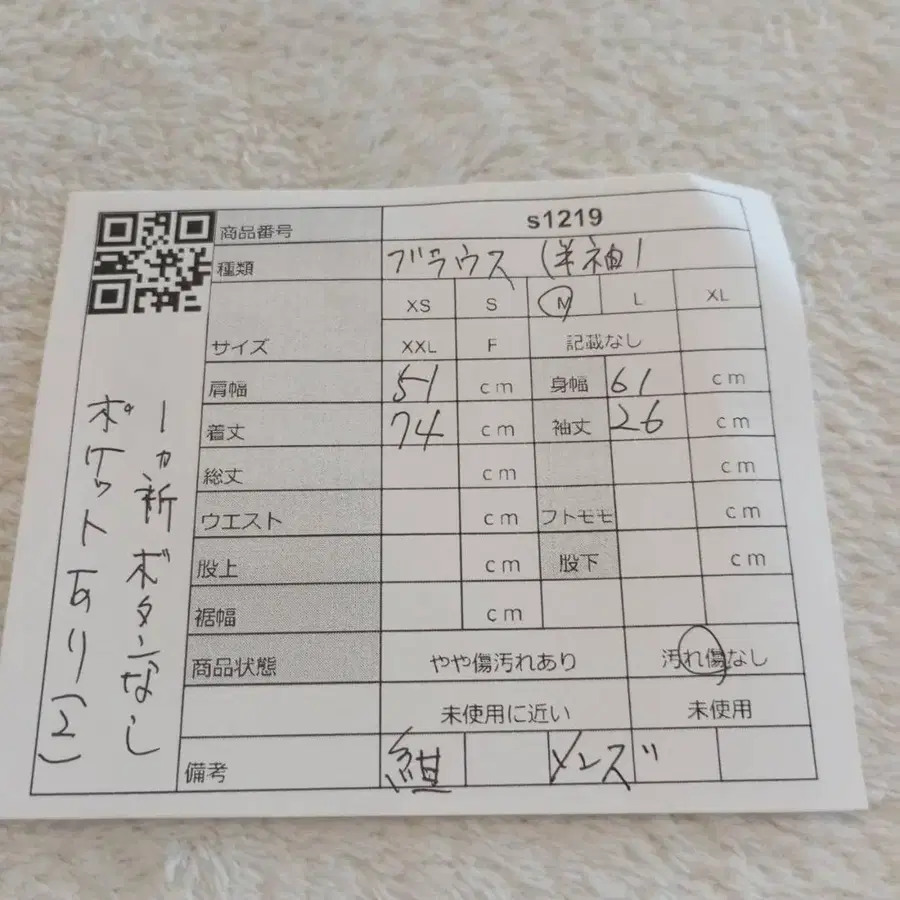 商品番号 s1219
種類 ブラウス (半袖)
XS S M L XL
サイズ XXL F 記載なし
肩幅 51 cm 身幅 61 cm
着丈 74 cm 袖丈 26 cm
総丈 cm cm
ウエスト cm フトモモ cm
股上 cm 股下 cm
裾幅 cm
商品状態 やや傷汚れあり 汚れ傷なし
未使用に近い 未使用
備考 紺 メンズ
1ヵ所ボタンなし
ポケットあり(2)